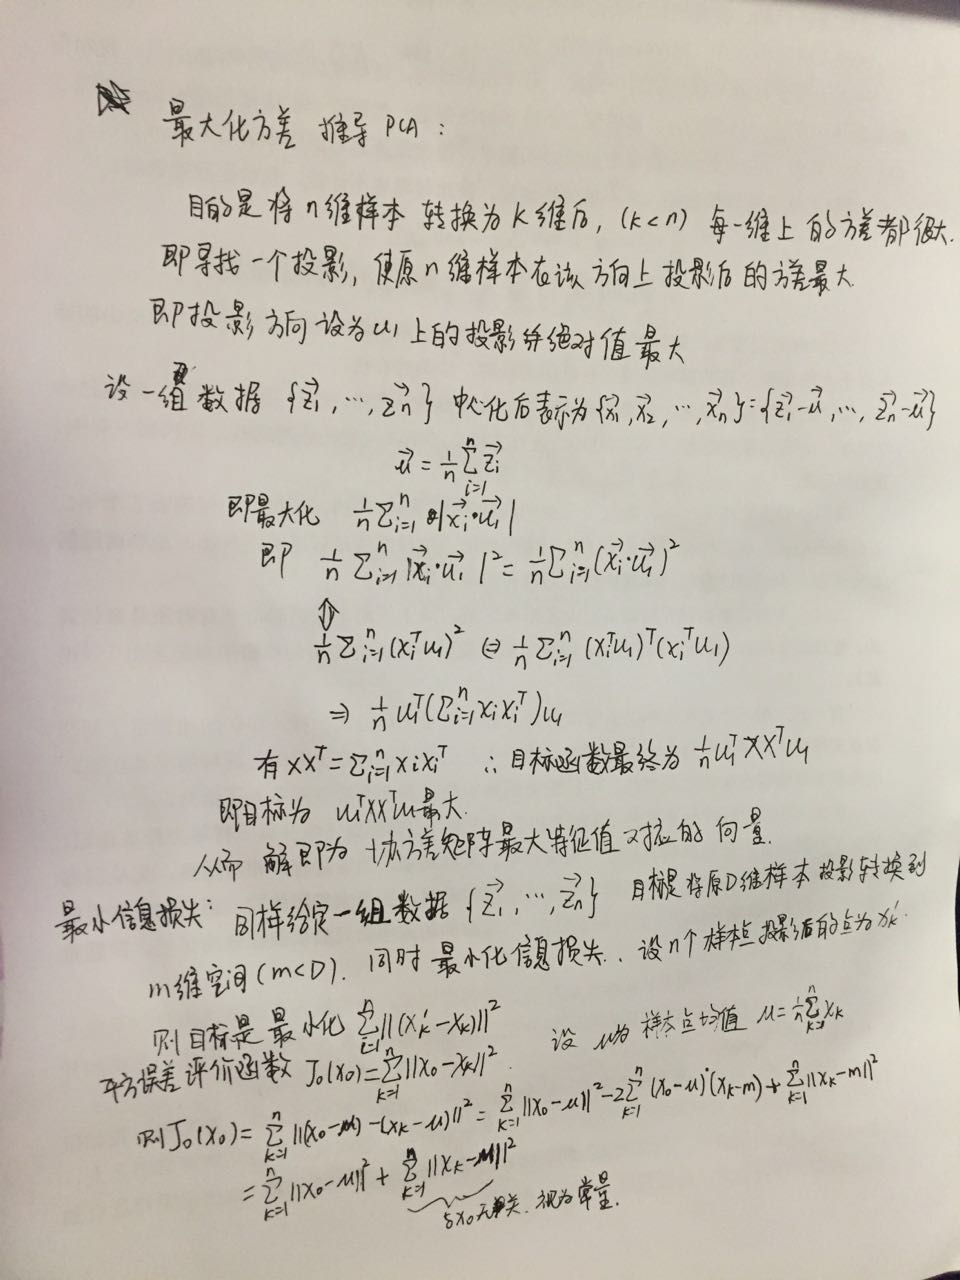 最大化方差 推导 PCA：
目的是将 n 维样本 转换为 K 维后，(k<n) 每一维上的方差都很大.
即寻找一个投影，使原 n 维样本在该方向上投影后的方差最大
即投影方向设为 u₁ 上的投影 绝对值最大
设一组数据 {z⃗₁, ···, z⃗ₙ} 中心化后表示为 {x⃗₁, x⃗₂, ···, x⃗ₙ} = {z⃗₁-u⃗, ···, z⃗ₙ-u⃗}
u⃗ = 1/n Σᵢ₌₁ⁿ z⃗ᵢ
即最大化 1/n Σᵢ₌₁ⁿ |x⃗ᵢ·u⃗₁|
即 1/n Σᵢ₌₁ⁿ |x⃗ᵢ·u⃗₁|² = 1/n Σᵢ₌₁ⁿ (x⃗ᵢ·u⃗₁)²
⇕
1/n Σᵢ₌₁ⁿ (xᵢᵀu₁)² ⇔ 1/n Σᵢ₌₁ⁿ (xᵢᵀu₁)ᵀ(xᵢᵀu₁)
⇒ 1/n u₁ᵀ(Σᵢ₌₁ⁿ xᵢxᵢᵀ)u₁
有 XXᵀ = Σᵢ₌₁ⁿ xᵢxᵢᵀ ∴ 目标函数最终为 1/n u₁ᵀXXᵀu₁
即目标为 u₁ᵀXXᵀu₁最大.
从而 解即为 协方差矩阵最大特征值对应的向量.
最小信息损失：同样给定一组数据 {z⃗₁, ···, z⃗ₙ} 目标是将原D维样本投影转换到
m维空间(m<D). 同时最小化信息损失. 设n个样本点投影后的点为xₖ′.
则目标是最小化 Σᵢ₌₁ⁿ ||(xₖ′-xₖ)||² 设 μ为 样本点均值 μ = 1/n Σₖ₌₁ⁿ xₖ
平方误差评价函数 J₀(x₀) = Σₖ₌₁ⁿ ||x₀-xₖ||².
则J₀(x₀) = Σₖ₌₁ⁿ ||(x₀-μ)-(xₖ-μ)||² = Σₖ₌₁ⁿ ||x₀-μ||² - 2Σₖ₌₁ⁿ (x₀-μ)·(xₖ-m) + Σₖ₌₁ⁿ ||xₖ-m||²
= Σₖ₌₁ⁿ ||x₀-μ||² + Σₖ₌₁ⁿ ||xₖ-μ||²
与x₀无关. 视为常量.